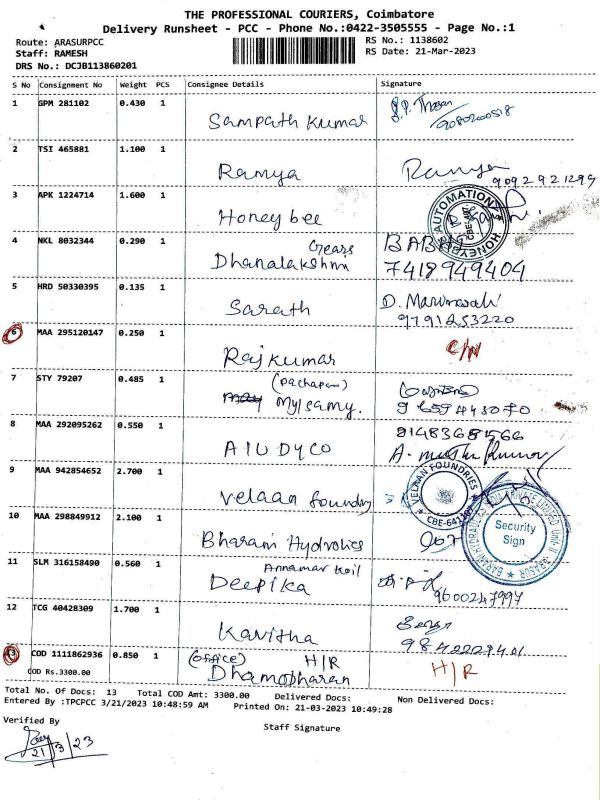 THE PROFESSIONAL COURIERS, Coimbatore
Delivery Runsheet - PCC - Phone No.:0422-3505555 - Page No.:1
Route: ARASURPCC
Staff: RAMESH
DRS No.: DCJB113860201
RS No.: 1138602
RS Date: 21-Mar-2023
S No Consignment No Weight PCS Consignee Details Signature
1 GPM 281102 0.430 1 Sampath Kumar
9080200518
2 TSI 465881 1.100 1 Ramya Ramya
9092921299
3 APK 1224714 1.600 1 Honey bee
HONEYBEE AUTOMATION
4 NKL 8032344 0.290 1 Dhanalakshmi Gears
7418949404
5 HRD 50330395 0.135 1 Sarath D.
9791253220
6 MAA 295120147 0.250 1 Rajkumar
7 STY 79207 0.485 1 Mylsamy.
8 MAA 292095262 0.550 1 AIUDYCO
9 MAA 942854652 2.700 1 Velaan foundry
VELAAN FOUNDRIES
CBE-641407
10 MAA 298849912 2.100 1 Bharani Hydrolics
Security
Sign
11 SLM 316158490 0.560 1 Deepika Annamar Koil
9600247997
12 TCG 40428309 1.700 1 Kavitha
13 COD 1111862936 0.850 1 (office) H/R H/R
COD Rs.3300.00 Dhamotharan
Total No. Of Docs: 13 Total COD Amt: 3300.00 Delivered Docs: Non Delivered Docs:
Entered By :TPCPCC 3/21/2023 10:48:59 AM Printed On: 21-03-2023 10:49:28
Verified By
Staff Signature
21/3/23